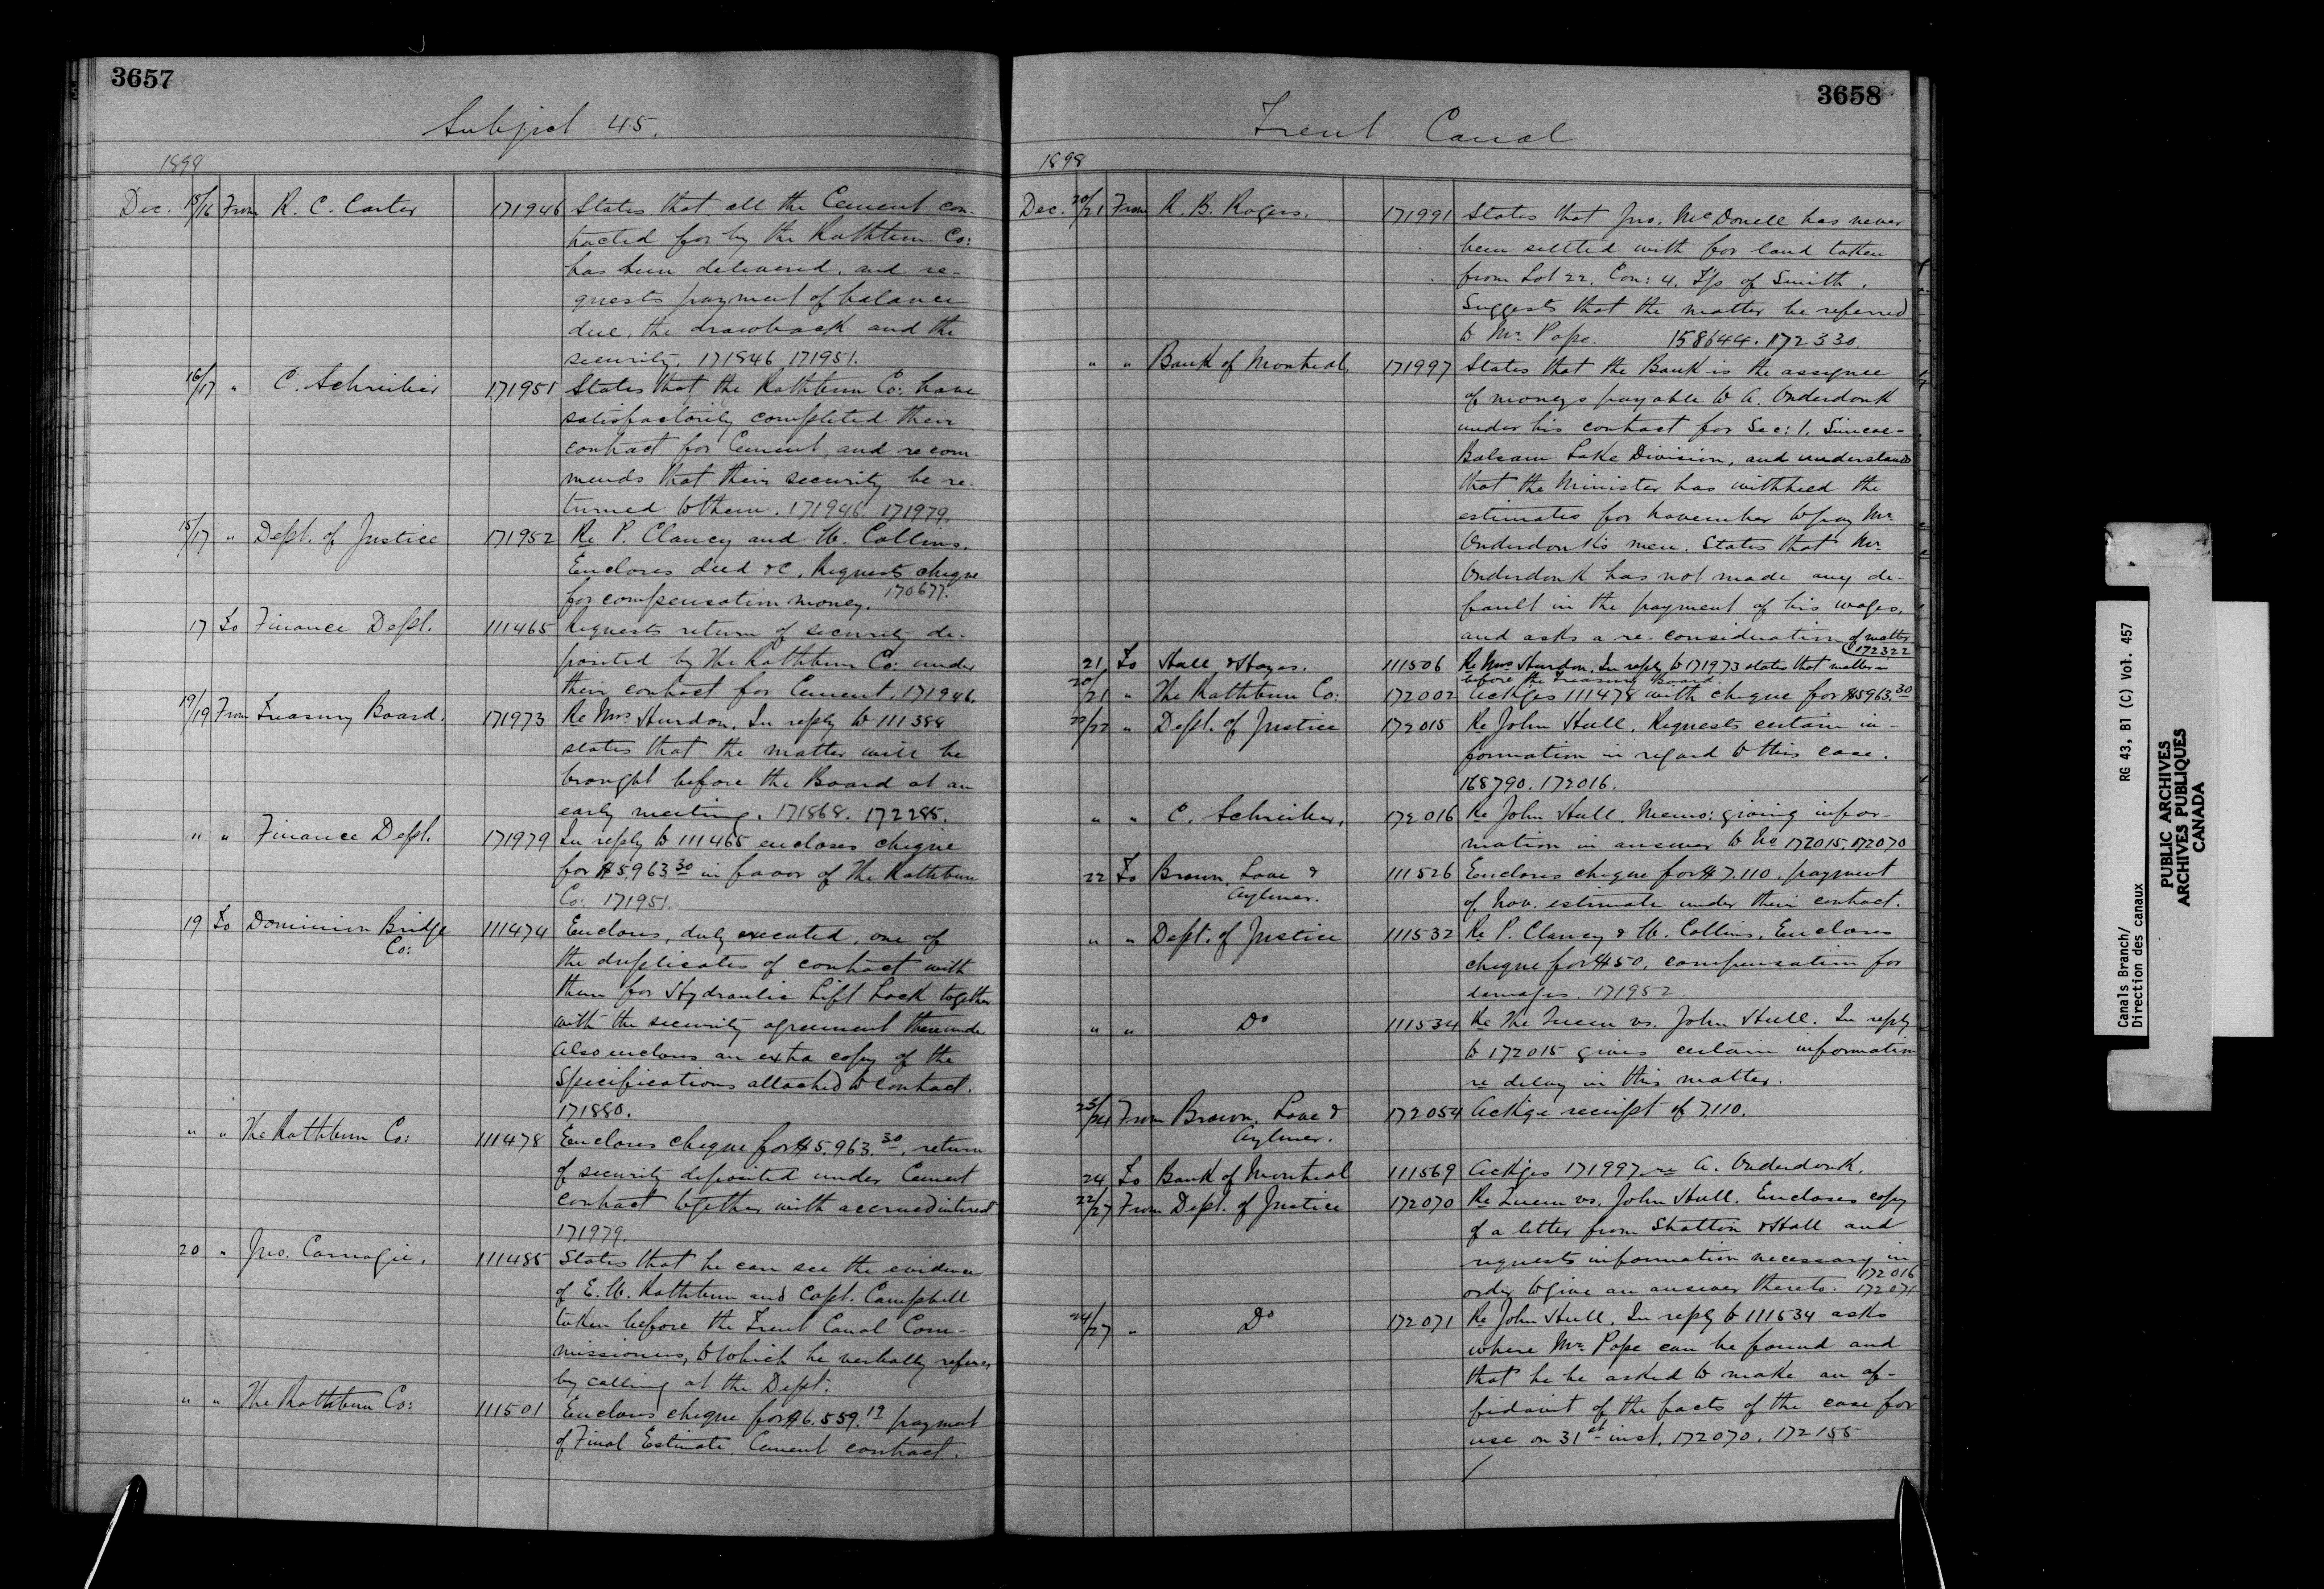 3657
Subject 45.
1898
Dec. 15/16 From R. C. Carter 171946 States that all the Cement con-
tracted for by the Rathbun Co:
has been delivered, and re-
quests payment of balance
due, the drawback and the
security. 171846 171951.
16/17 " C. Schreiber 171951 States that the Rathbun Co: have
satisfactorily completed their
contract for Cement, and recom-
mends that their security be re-
turned to them. 171946. 171979.
15/17 " Dept. of Justice 171952 Re P. Clancy and W. Collins.
Encloses deed &c. Requests cheque
for compensation money. 170677.
17 To Finance Dept. 111465 Requests return of security de-
posited by The Rathbun Co: under
their contract for Cement. 171946.
19/19 From Treasury Board. 171973 Re Mrs Hurdon. In reply to 111388
states that the matter will be
brought before the Board at an
early meeting. 171868. 172285.
" " Finance Dept. 171979 In reply to 111465 encloses cheque
for $5,963 30 in favor of The Rathbun
Co: 171951.
19 To Dominion Bridge 111474 Encloses, duly executed, one of
Co:
the duplicates of contract with
them for Hydraulic Lift Lock together
with the security agreement thereunder
Also encloses an extra copy of the
Specifications attached to contract.
171880.
" " The Rathbun Co: 111478 Encloses cheque for $5.963.30, return
of security deposited under Cement
contract together with accrued interest
171979.
20 " Jno. Carnegie. 111485 States that he can see the evidence
of E. W. Rathbun and Capt. Campbell
taken before the Trent Canal Com-
missioners, to which he verbally refers,
by calling at the Dept.
" " The Rathbun Co: 111501 Encloses cheque for $6.559.19 payment
of Final Estimate. Cement contract.
3658
Trent Canal
1898
Dec. 20/21 From R. B. Rogers. 171991 States that Jno. McDonell has never
been settled with for land taken
from Lot 22. Con: 4. T/p of Smith.
Suggests that the matter be referred
to Mr Pope. 158644. 172330.
" " Bank of Montreal, 171997 States that the Bank is the assignee
of moneys payable to A. Onderdonk
under his contract for Sec: 1. Simcoe-
Balsam Lake Division, and understands
that the Minister has withheld the
estimates for November to pay Mr
Onderdonk's men. States that Mr
Onderdonk has not made any de-
fault in the payment of his wages,
and asks a re-consideration of matter
172322
21 To Hall & Hayes. 111506 Re Mrs Hurdon. In reply to 171973 states that matter is
before the Treasury Board.
20/21 " The Rathbun Co: 172002 Ackges 111478 with cheque for $5963.30
22/22 " Dept. of Justice 172015 Re John Hull. Requests certain in-
formation in regard to this case.
168790. 172016.
" " C. Schreiber, 172016 Re John Hull. Memo: giving infor-
mation in answer to No 172015. 172070
22 To Brown, Love & 111526 Encloses cheque for $7.110, payment
Aylmer.
of Nov. estimate under their contract.
" " Dept. of Justice 111532 Re P. Clancy & W. Collins. Encloses
cheque for $50. compensation for
damages. 171952.
" " Do 111534 Re The Queen vs. John Hull. In reply
to 172015 gives certain information
re delay in this matter.
23/24 From Brown, Love & 172054 Ackge receipt of 7.110.
Aylmer.
24 To Bank of Montreal 111569 Ackges 171997 re A. Onderdonk.
22/27 From Dept. of Justice 172070 Re Queen vs. John Hull. Encloses copy
of a letter from Stratton & Hall and
requests information necessary in
order to give an answer thereto. 172016
172071
24/27 " Do 172071 Re John Hull. In reply to 111534 asks
where Mr Pope can be found and
that he be asked to make an af-
fidavit of the facts of the case for
use on 31st inst. 172070. 172155
Canals Branch/ RG 43, B1 (C) Vol. 457
Direction des canaux
PUBLIC ARCHIVES
ARCHIVES PUBLIQUES
CANADA